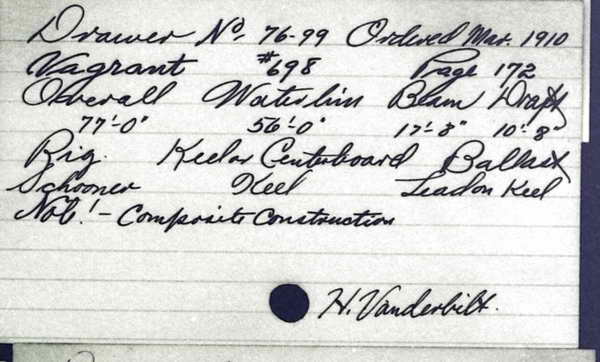 Drawer No. 76-99 Ordered Mar. 1910
Vagrant #698 Page 172
Overall Waterlin Beam Draft
77'-0" 56'-0" 17'-3" 10'-8"
Rig. Keel or Centerboard Ballast
Schooner Keel Lead on Keel
Not! - Composite Construction
H. Vanderbilt.